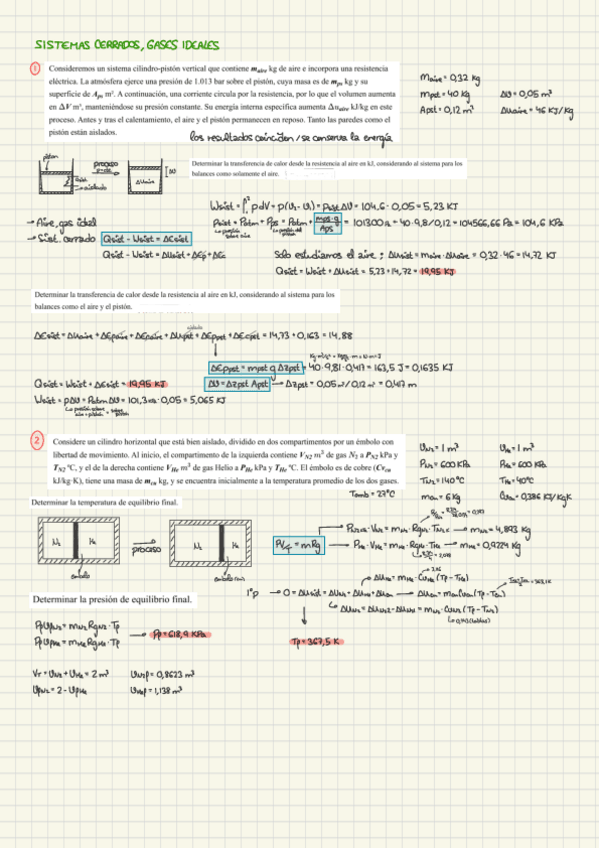 SISTEMAS CERRADOS, GASES IDEALES
1 Consideremos un sistema cilindro-pistón vertical que contiene m_aire kg de aire e incorpora una resistencia
eléctrica. La atmósfera ejerce una presión de 1.013 bar sobre el pistón, cuya masa es de m_ps kg y su
superficie de A_ps m². A continuación, una corriente circula por la resistencia, por lo que el volumen aumenta
en ΔV m³, manteniéndose su presión constante. Su energía interna específica aumenta Δu_aire kJ/kg en este
proceso. Antes y tras el calentamiento, el aire y el pistón permanecen en reposo. Tanto las paredes como el
pistón están aislados.
Maire = 0,32 kg
mpst = 40 kg ΔV = 0,05 m³
Apst = 0,12 m² Δuaire = 46 KJ/Kg
los resultados coinciden / se conserva la energía
pistón
proceso
p=cte
aislado
Δuaire
ΔV
Determinar la transferencia de calor desde la resistencia al aire en kJ, considerando al sistema para los
balances como solamente el aire.
Wsist = ∫₁² p dV = p(V₂ - V₁) = psist ΔV = 104,6 · 0,05 = 5,23 KJ
→ Aire, gas ideal
Psist = Patm + Pps = Patm + mps·g / Aps = 101300 + 40·9,8/0,12 = 104566,66 Pa = 104,6 KPa
→ Sist. cerrado Qsist - Wsist = ΔEsist
Qsist - Wsist = ΔUsist + ΔEp + ΔEc
Solo estudiamos el aire ; ΔUsist = maire · Δuaire = 0,32 · 46 = 14,72 KJ
Qsist = Wsist + ΔUsist = 5,23 + 14,72 = 19,95 KJ
Determinar la transferencia de calor desde la resistencia al aire en kJ, considerando al sistema para los
balances como el aire y el pistón.
aislado
ΔEsist = ΔUaire + ΔEpaire + ΔEcaire + ΔUpst + ΔEppst + ΔEcpst = 14,73 + 0,163 = 14,88
ΔEppst = mpst g Δzpst = 40·9,81·0,417 = 163,5 J = 0,1635 KJ
Qsist = Wsist + ΔEsist = 19,95 KJ
ΔV = Δzpst Apst → Δzpst = 0,05 m³/0,12 m² = 0,417 m
Wsist = pΔV = Patm ΔV = 101,3 · 0,05 = 5,065 KJ
2 Considere un cilindro horizontal que está bien aislado, dividido en dos compartimentos por un émbolo con
libertad de movimiento. Al inicio, el compartimento de la izquierda contiene V_N2 m³ de gas N₂ a P_N2 kPa y
T_N2 ºC, y el de la derecha contiene V_He m³ de gas Helio a P_He kPa y T_He ºC. El émbolo es de cobre (Cv_cu
kJ/kg·K), tiene una masa de m_cu kg, y se encuentra inicialmente a la temperatura promedio de los dos gases.
VN2 = 1 m³ VHe = 1 m³
PN2 = 600 KPa PHe = 600 KPa
TN2 = 140°C THe = 40°C
mcu = 6 Kg Cvcu = 0,386 KJ/KgK
Tamb = 27°C
Determinar la temperatura de equilibrio final.
N₂ He
proceso
N₂ He
émbolo
PV = mRg T
PN2 · VN2 = mN2 · RgN2 · TN2 → mN2 = 4,893 Kg
PHe · VHe = mHe · RgHe · THe → mHe = 0,9224 Kg
ΔUHe = mHe · CvHe (Tf - THe)
1°p → 0 = ΔUsist = ΔUN2 + ΔUHe + ΔUcu → ΔUcu = mcu Cvcu (Tf - Tcu)
Tf = 367,5 K
Determinar la presión de equilibrio final.
Pf VfN2 = mN2 RgN2 · Tf
Pf VfHe = mHe RgHe · Tf
→ Pf = 618,9 KPa
VT = VN2 + VHe = 2 m³
VfN2 = 2 - VfHe
0,8623 m³
1,138 m³